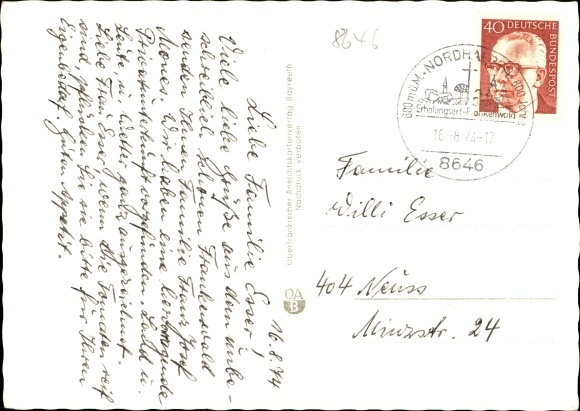 8646
16.8.74
Liebe Familie Esser!
Viele liebe Grüße aus dem unbe-
schreibl. schönen Frankenwald
senden Ihnen Familie Franz Josef
Wir haben eine hervorragende
Privatunterkunft vorgefunden. Land u.
Leute, u. Wetter ganz ausgezeichnet.
Liebe Frau Esser, wenn die Tomaten reif
sind, pflücken Sie sie bitte für Ihren
Eigenbedarf. Guten Appetit.
Oberfränkischer Ansichtskartenverlag Bayreuth
Nachdruck verboten
OA
B
40 DEUTSCHE
BUNDESPOST
600 m ü.M.-NORDHALBEN
Erholungsort-Frankenwald
16.-8.73-17
8646
Familie
Willi Esser
404 Neuss
Minzstr. 24